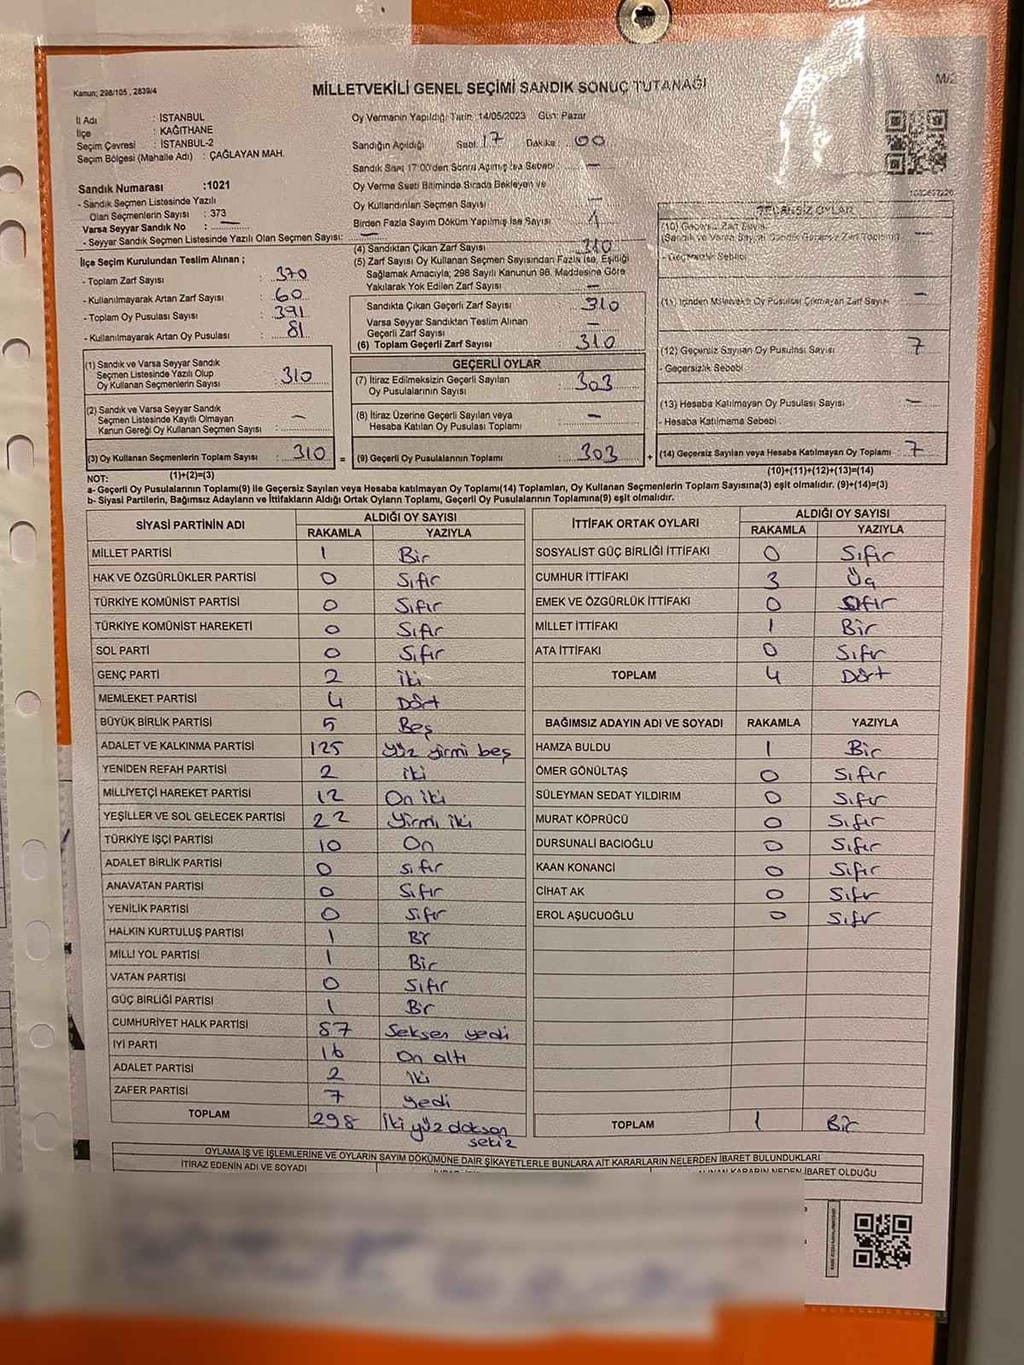 Kanun; 298/105 , 2839/4
MİLLETVEKİLİ GENEL SEÇİMİ SANDIK SONUÇ TUTANAĞI
M/2
İl Adı : İSTANBUL
İlçe : KAĞITHANE
Seçim Çevresi : İSTANBUL-2
Seçim Bölgesi (Mahalle Adı) : ÇAĞLAYAN MAH.
Sandık Numarası :1021
- Sandık Seçmen Listesinde Yazılı
Olan Seçmenlerin Sayısı : 373
Varsa Seyyar Sandık No : —
- Seyyar Sandık Seçmen Listesinde Yazılı Olan Seçmen Sayısı: —
İlçe Seçim Kurulundan Teslim Alınan ;
- Toplam Zarf Sayısı : 370
- Kullanılmayarak Artan Zarf Sayısı : 60
- Toplam Oy Pusulası Sayısı : 391
- Kullanılmayarak Artan Oy Pusulası : 81
(1) Sandık ve Varsa Seyyar Sandık
Seçmen Listesinde Yazılı Olup
Oy Kullanan Seçmenlerin Sayısı : 310
(2) Sandık ve Varsa Seyyar Sandık
Seçmen Listesinde Kayıtlı Olmayan
Kanun Gereği Oy Kullanan Seçmen Sayısı : —
(3) Oy Kullanan Seçmenlerin Toplam Sayısı : 310 =
(1)+(2)=(3)
Oy Vermenin Yapıldığı Tarih: 14/05/2023 Gün: Pazar
Sandığın Açıldığı Saat : 17 Dakika : 00
Sandık Saat 17:00'den Sonra Açılmış İse Sebebi : —
Oy Verme Saati Bitiminde Sırada Bekleyen ve
Oy Kullandırılan Seçmen Sayısı : —
Birden Fazla Sayım Döküm Yapılmış İse Sayısı : 1
(4) Sandıktan Çıkan Zarf Sayısı : 310
(5) Zarf Sayısı Oy Kullanan Seçmen Sayısından Fazla İse, Eşitliği
Sağlamak Amacıyla; 298 Sayılı Kanunun 98. Maddesine Göre
Yakılarak Yok Edilen Zarf Sayısı : —
Sandıkta Çıkan Geçerli Zarf Sayısı : 310
Varsa Seyyar Sandıktan Teslim Alınan
Geçerli Zarf Sayısı : —
(6) Toplam Geçerli Zarf Sayısı : 310
GEÇERLİ OYLAR
(7) İtiraz Edilmeksizin Geçerli Sayılan
Oy Pusulalarının Sayısı : 303
(8) İtiraz Üzerine Geçerli Sayılan veya
Hesaba Katılan Oy Pusulası Toplamı : —
(9) Geçerli Oy Pusulalarının Toplamı : 303 +
GEÇERSİZ OYLAR
(10) Geçersiz Zarf Sayısı
(Sandık ve Varsa Seyyar Sandık Geçersiz Zarf Toplamı) : —
- Geçersizlik Sebebi
(11) İçinden Milletvekili Oy Pusulası Çıkmayan Zarf Sayısı : —
(12) Geçersiz Sayılan Oy Pusulası Sayısı : 7
- Geçersizlik Sebebi :
(13) Hesaba Katılmayan Oy Pusulası Sayısı : —
- Hesaba Katılmama Sebebi :
(14) Geçersiz Sayılan veya Hesaba Katılmayan Oy Toplamı : 7
(10)+(11)+(12)+(13)=(14)
NOT:
a- Geçerli Oy Pusulalarının Toplamı(9) ile Geçersiz Sayılan veya Hesaba katılmayan Oy Toplamı(14) Toplamları, Oy Kullanan Seçmenlerin Toplam Sayısına(3) eşit olmalıdır. (9)+(14)=(3)
b- Siyasi Partilerin, Bağımsız Adayların ve İttifakların Aldığı Ortak Oyların Toplamı, Geçerli Oy Pusulalarının Toplamına(9) eşit olmalıdır.
SİYASİ PARTİNİN ADI ALDIĞI OY SAYISI
RAKAMLA YAZIYLA
MİLLET PARTİSİ 1 Bir
HAK VE ÖZGÜRLÜKLER PARTİSİ 0 Sıfır
TÜRKİYE KOMÜNİST PARTİSİ 0 Sıfır
TÜRKİYE KOMÜNİST HAREKETİ 0 Sıfır
SOL PARTİ 0 Sıfır
GENÇ PARTİ 2 İki
MEMLEKET PARTİSİ 4 Dört
BÜYÜK BİRLİK PARTİSİ 5 Beş
ADALET VE KALKINMA PARTİSİ 125 Yüz yirmi beş
YENİDEN REFAH PARTİSİ 2 iki
MİLLİYETÇİ HAREKET PARTİSİ 12 On iki
YEŞİLLER VE SOL GELECEK PARTİSİ 22 Yirmi iki
TÜRKİYE İŞÇİ PARTİSİ 10 On
ADALET BİRLİK PARTİSİ 0 sıfır
ANAVATAN PARTİSİ 0 Sıfır
YENİLİK PARTİSİ 0 Sıfır
HALKIN KURTULUŞ PARTİSİ 1 Bir
MİLLİ YOL PARTİSİ 1 Bir
VATAN PARTİSİ 0 Sıfır
GÜÇ BİRLİĞİ PARTİSİ 1 Bir
CUMHURİYET HALK PARTİSİ 87 Seksen yedi
İYİ PARTİ 16 On altı
ADALET PARTİSİ 2 İki
ZAFER PARTİSİ 7 yedi
TOPLAM 298 İki yüz doksan sekiz
İTTİFAK ORTAK OYLARI ALDIĞI OY SAYISI
RAKAMLA YAZIYLA
SOSYALİST GÜÇ BİRLİĞİ İTTİFAKI 0 Sıfır
CUMHUR İTTİFAKI 3 Üç
EMEK VE ÖZGÜRLÜK İTTİFAKI 0 Sıfır
MİLLET İTTİFAKI 1 Bir
ATA İTTİFAKI 0 Sıfır
TOPLAM 4 Dört
BAĞIMSIZ ADAYIN ADI VE SOYADI RAKAMLA YAZIYLA
HAMZA BULDU 1 Bir
ÖMER GÖNÜLTAŞ 0 Sıfır
SÜLEYMAN SEDAT YILDIRIM 0 Sıfır
MURAT KÖPRÜCÜ 0 Sıfır
DURSUNALİ BACIOĞLU 0 Sıfır
KAAN KONANCİ 0 Sıfır
CİHAT AK 0 Sıfır
EROL AŞUCUOĞLU 0 Sıfır
TOPLAM 1 Bir
OYLAMA İŞ VE İŞLEMLERİNE VE OYLARIN SAYIM DÖKÜMÜNE DAİR ŞİKAYETLERLE BUNLARA AİT KARARLARIN NELERDEN İBARET BULUNDUKLARI
İTİRAZ EDENİN ADI VE SOYADI
KARARIN NEDEN İBARET OLDUĞU